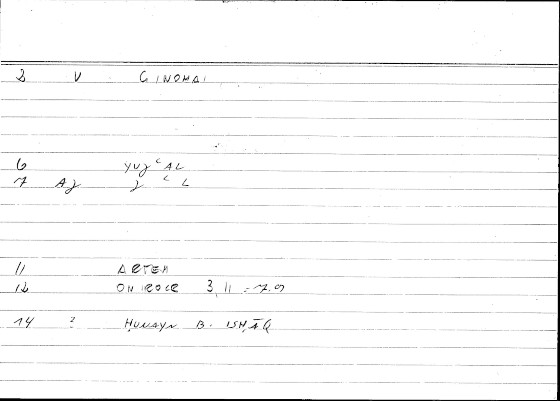 2 V GINOMAI
6 YUJʿAL
7 AJ J ʿ L
11 ARTEM
12 ONIROCR 3, 11 = 17.9
14 ? ḤUNAYN B. ISḤĀQ